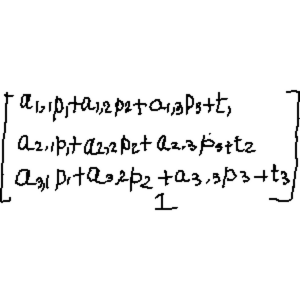 [a₁,₁p₁+a₁,₂p₂+a₁,₃p₃+t₁
a₂,₁p₁+a₂,₂p₂+a₂,₃p₃+t₂
a₃,₁p₁+a₃,₂p₂+a₃,₃p₃+t₃
1]